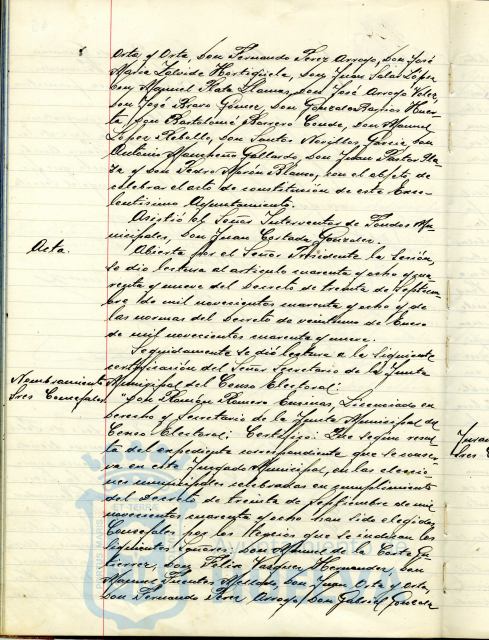 Orta y Orta, Don Fernando Perez Arroyo, Don José
Maria Zalvide Hortigüela, Don Juan Salas López
Don Manuel Mata Llamas, Don José Arroyo Velez,
Don José Bravo Gómez, Don Gonzalo Barrios Huer-
ta, Don Bartolomé Barrero Conde, Don Manuel
López Rebollo, Don Santos Novillos Garcia, Don
Antonio Mampeño Gallardo, Don Juan Pastor
y Don Pedro Morón Blanco, con el objeto de
celebrar el acto de constitución de este Exce-
lentísimo Ayuntamiento.
Asistió el Señor Interventor de Fondos Mu-
nicipales, Don Juan Cortada Gonzalez.
Acta
Abierta por el Señor Presidente la Sesión,
se dió lectura al articulo cuarenta y ocho y cua-
renta y nueve del Decreto de treinta de Septiem-
bre de mil novecientos cuarenta y ocho y de
las normas del Decreto de veintiuno de Enero
de mil novecientos cuarenta y nueve.
Seguidamente se dió lectura a la siguiente
certificación del Señor Secretario de la Junta
Nombramiento
Municipal del Censo Electoral:
Sres Concejales.
"Don Ramón Romero Encinas, Licenciado en
derecho y Secretario de la Junta Municipal del
Censo Electoral; Certifico: Que segun resul-
ta del expediente correspondiente que se conser-
va en este Juzgado Municipal, en las eleccio-
nes municipales celebradas en cumplimiento
del Decreto de treinta de septiembre de mil
novecientos cuarenta y ocho han sido elegidos
Concejales por los tercios que se indican los
siguientes señores: Don Manuel de la Corte Gu-
tierrez, Don Felix Vazquez Hernandez, Don
Manuel Fuentes Mellado, Don Juan Orta y Orta,
Don Fernando Perez Arroyo, Don Gabriel Gonzalez
Ayuntamiento de
HUELVA